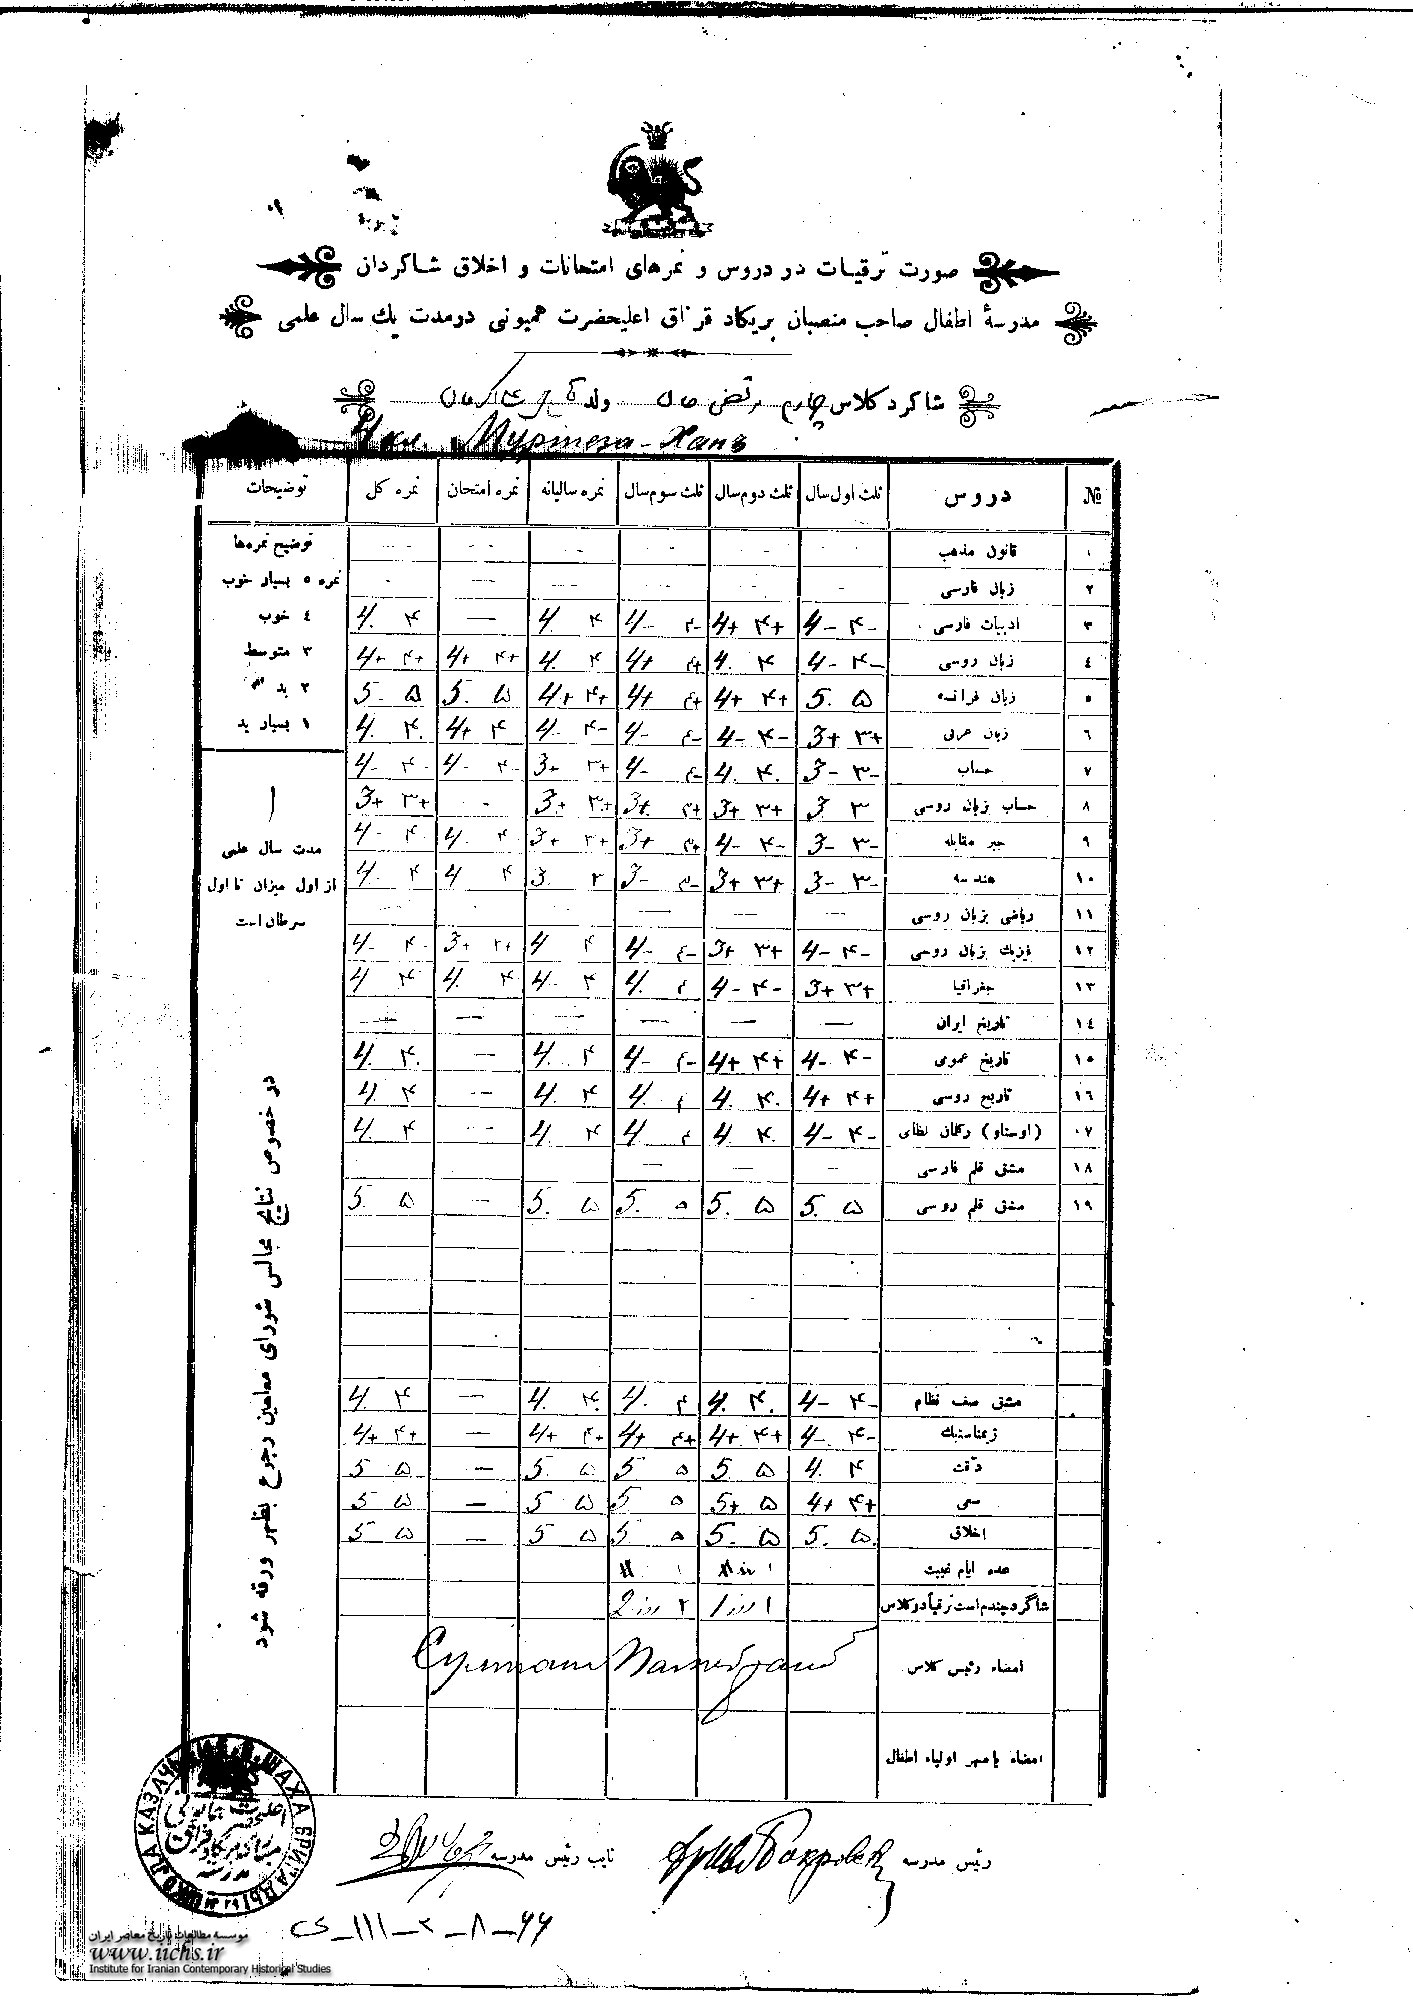 صورت ترقیات در دروس و نمره‌های امتحانات و اخلاق شاگردان
مدرسهٔ اطفال صاحب منصبان بریکاد قزاق اعلیحضرت همیونی در مدت یك سال علمی
شاکرد کلاس چهارم مرتضی خان ولد
4 кл. Муртеза-Ханъ
№ دروس ثلث اول سال ثلث دوم سال ثلث سوم سال نمره سالیانه نمره امتحان نمره کل توضیحات
۱ قانون مذهب — — — — — —
۲ زبان فارسی — — — — — —
۳ ادبیات فارسی ۴- 4- ۴+ 4+ ۴- 4- ۴ 4. — ۴ 4.
٤ زبان روسی ۴- 4- ۴ 4. ۴+ 4+ ۴ 4. ۴+ 4+ ۴+ 4+
٥ زبان فرانسه ۵ 5. ۴+ 4+ ۴+ 4+ ۴+ 4+ ۵ 5. ۵ 5.
٦ زبان عربی ۳+ 3+ ۴- 4- ۴- 4- ۴- 4- ۴ 4+ ۴ 4.
۷ حساب ۳- 3- ۴ 4. ۴- 4- ۳+ 3+ ۴- 4- ۴- 4-
۸ حساب بزبان روسی ۳ 3 ۳+ 3+ ۳+ 3+ ۳+ 3+ — ۳+ 3+
۹ جبر مقابله ۳- 3- ۴- 4- ۳+ 3+ ۳+ 3+ ۴ 4. ۴ 4-
۱۰ هندسه ۳- 3- ۳+ 3+ ۳- 3- ۳ 3. ۴ 4 ۴ 4.
۱۱ ریاضی بزبان روسی — — —
۱۲ فیزیك بزبان روسی ۴- 4- ۳+ 3+ ۴- 4- ۴ 4 ۳+ 3+ ۴- 4-
۱۳ جغرافیا ۳+ 3+ ۴- 4- ۴ 4. ۴ 4- ۴ 4. ۴ 4
۱٤ تاریخ ایران — — — — — —
۱٥ تاریخ عمومی ۴- 4- ۴+ 4+ ۴- 4- ۴ 4. — ۴ 4.
۱٦ تاریخ روسی ۴+ 4+ ۴ 4. ۴ 4 ۴ 4. — ۴ 4
۱۷ (اوستاو) رکلمان نظامی ۴- 4- ۴ 4. ۴ 4 ۴ 4. — ۴ 4.
۱۸ مشق قلم فارسی — — —
۱۹ مشق قلم روسی ۵ 5. ۵ 5. ۵ 5. ۵ 5. — ۵ 5.
مشق صف نظام ۴- 4- ۴ 4. ۴ 4. ۴ 4. — ۴ 4.
ژیمناستیك ۴- 4- ۴+ 4+ ۴+ 4+ ۴+ 4+ — ۴+ 4+
دقت ۴ 4. ۵ 5. ۵ 5 ۵ 5. — ۵ 5
سعی ۴+ 4+ ۵ 5+ ۵ 5 ۵ 5 — ۵ 5
اخلاق ۵ 5. ۵ 5. ۵ 5 ۵ 5 — ۵ 5
عده ایام غیبت
شاگرد چندم است ترقیاً در کلاس ۱ روز 1 ۲ روز 2
امضاء رئیس کلاس
امضاء یا مهر اولیاء اطفال
توضیح نمره‌ها
نمره ٥ بسیار خوب
٤ خوب
۳ متوسط
۲ بد
۱ بسیار بد
مدت سال علمی
از اول میزان تا اول
سرطان است
در خصوص نتایج مجالس شورای معلمین رجوع بظهر ورقه شود
رئیس مدرسه
نایب رئیس مدرسه
КАЗАЧЬЕЙ Е. В. ШАХА БРИГАДЫ ШКОЛА
اعلیحضرت همایونی
بریکاد قزاق
مدرسه
۶۶-۸-۲-۱۱۱-ی
موسسه مطالعات تاریخ معاصر ایران
www.iichs.ir
Institute for Iranian Contemporary Historical Studies